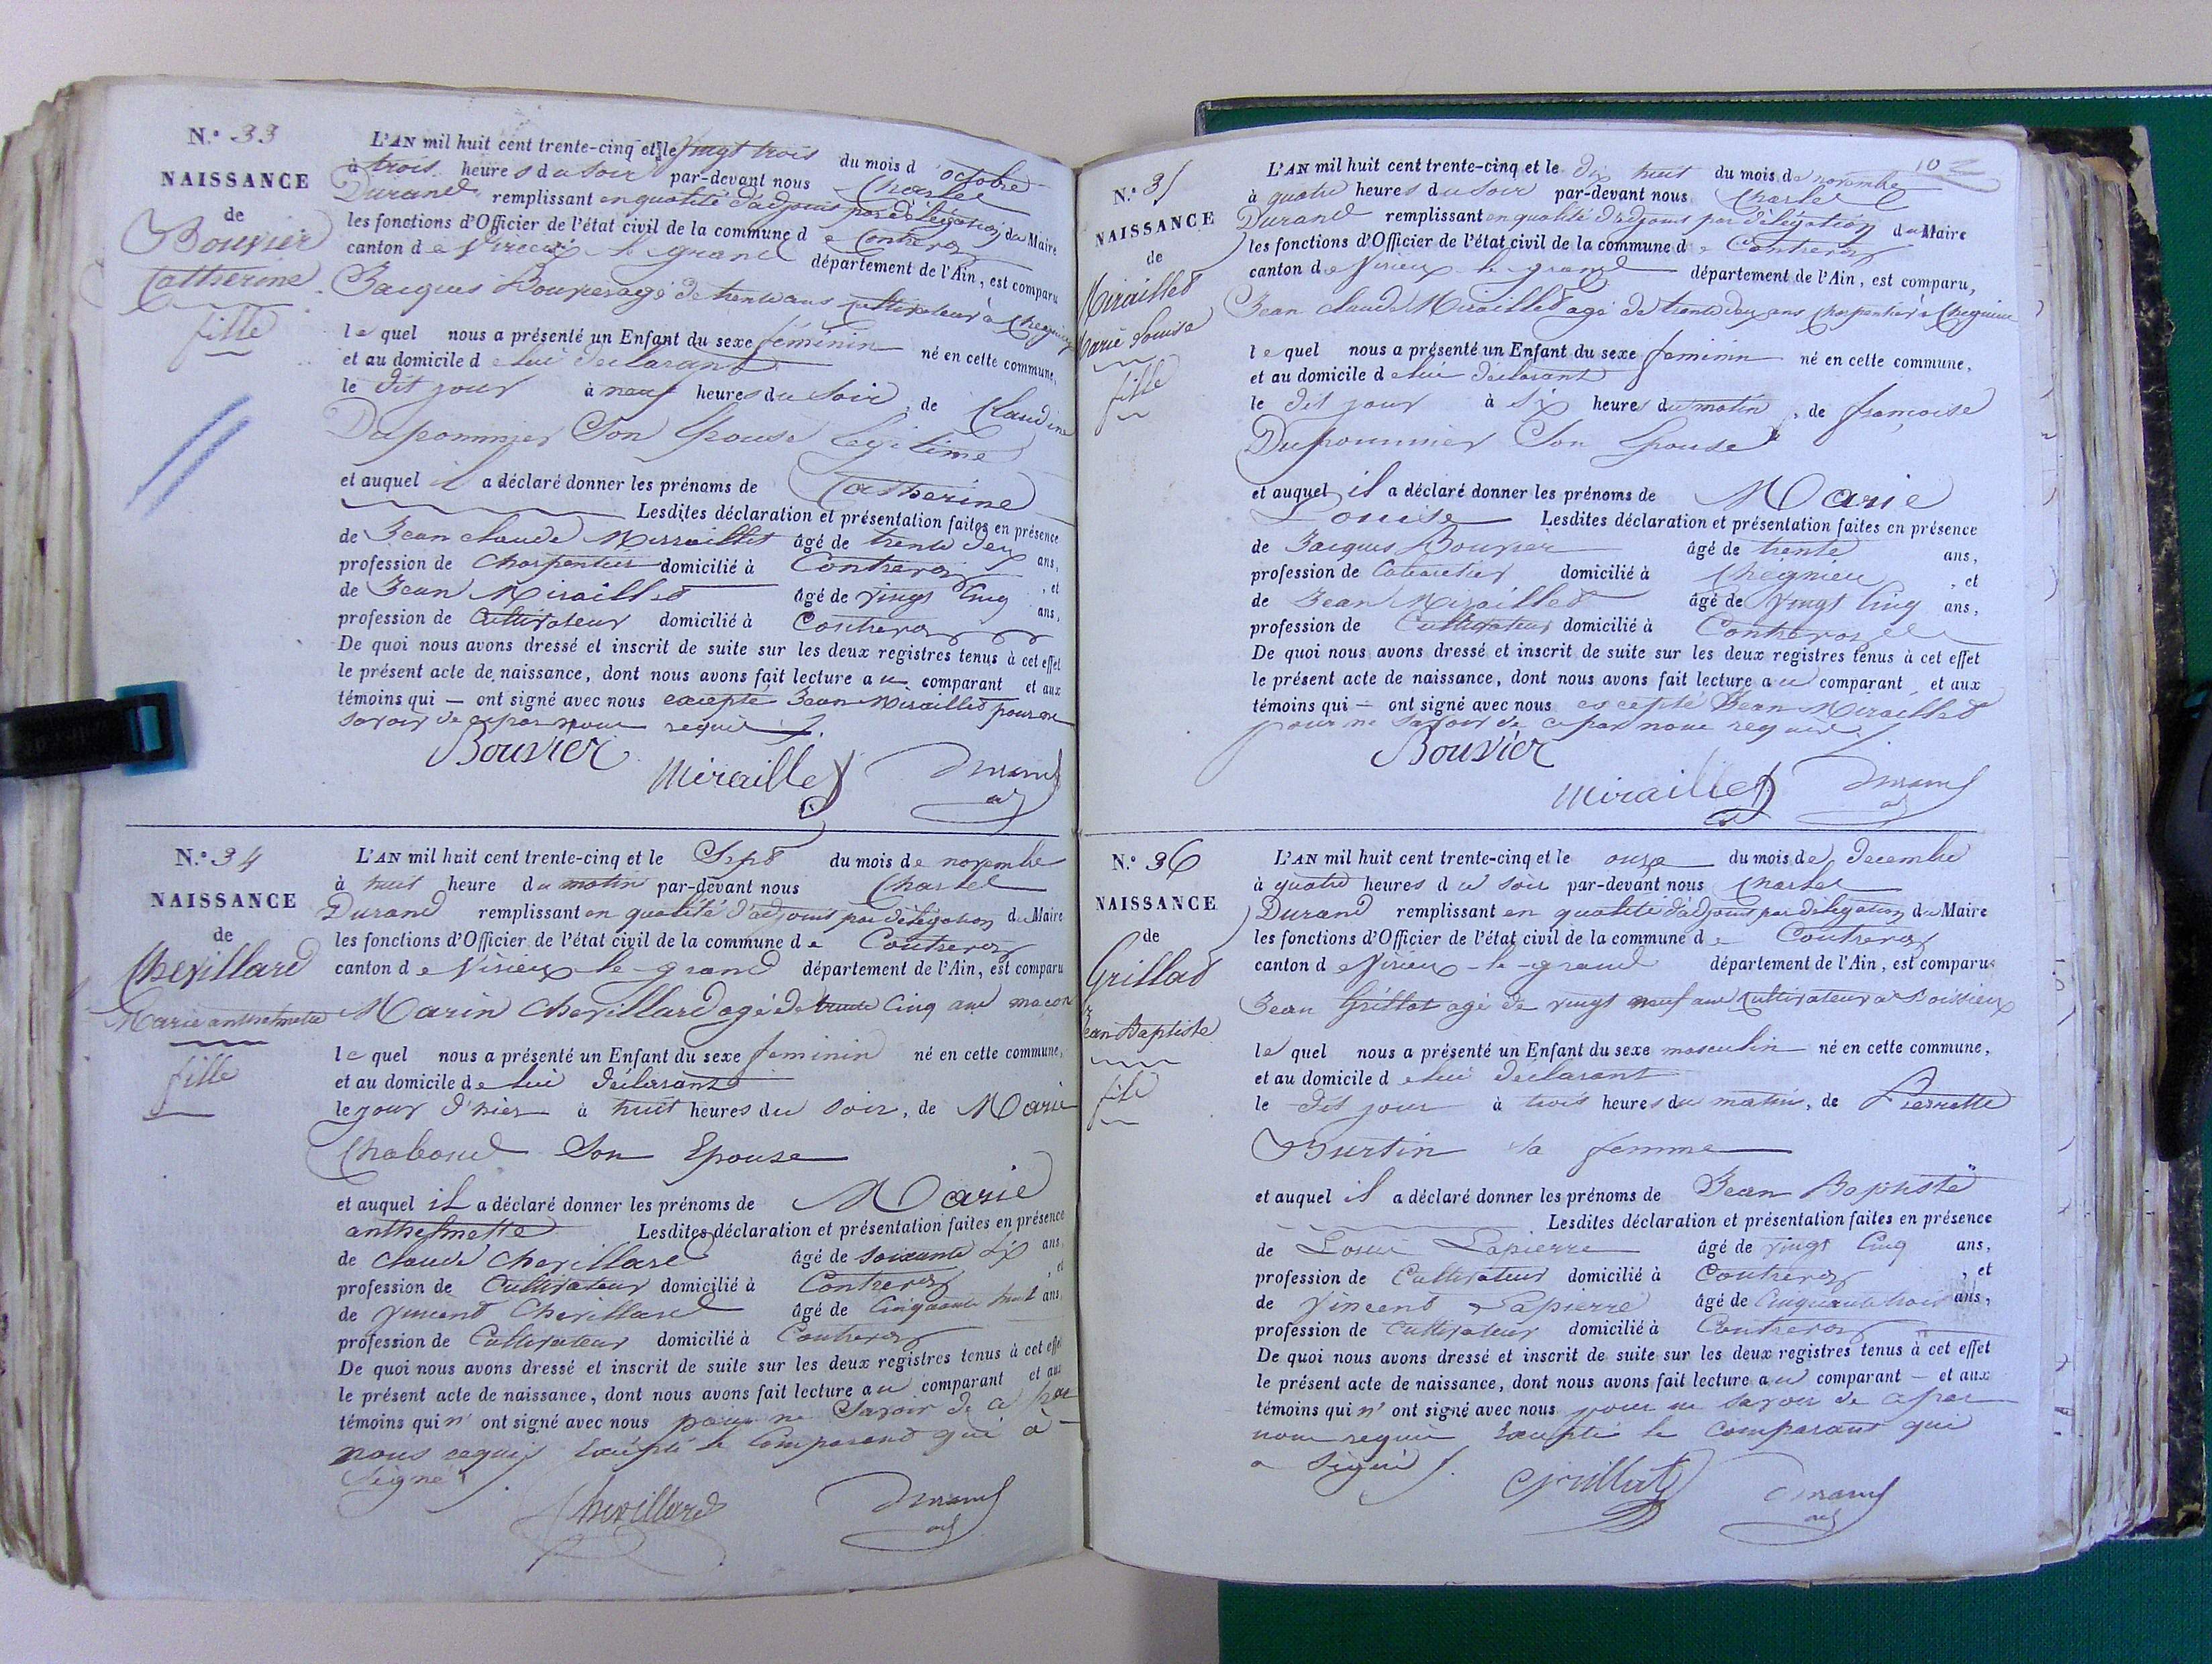 N.º 33
NAISSANCE
de
Bouvier
Catherine
fille
L'AN mil huit cent trente-cinq et le vingt trois du mois d'octobre
à trois heures du soir par-devant nous Charle
Durand remplissant en qualité d'adjoint par délégation du Maire
les fonctions d'Officier de l'état civil de la commune de Contrevoz
canton de Virieux le grand département de l'Ain, est comparu
Jacques Bouvier agé de trente ans cultivateur à Cheignieu
lequel nous a présenté un Enfant du sexe féminin né en cette commune,
et au domicile de lui déclarant
le dit jour à neuf heures du soir, de Claudine
Dupommier Son Epouse legitime
et auquel il a déclaré donner les prénoms de Catherine
Lesdites déclaration et présentation faites en présence
de Jean claude Mirraillet âgé de trente deux ans,
profession de Charpentier domicilié à Contrevoz, et
de Jean Miraillet âgé de vingt Cinq ans,
profession de Cultivateur domicilié à Contrevoz
De quoi nous avons dressé et inscrit de suite sur les deux registres tenus à cet effet
le présent acte de naissance, dont nous avons fait lecture au comparant et aux
témoins qui — ont signé avec nous excepté Jean Miraillet pour ne
savoir de ce par nous requis
Bouvier
Miraillet
Durand
adj
N.º 34
NAISSANCE
de
Chevillard
Marie anthelmette
fille
L'AN mil huit cent trente-cinq et le Sept du mois de novembre
à huit heure du matin par-devant nous Charle
Durand remplissant en qualité d'adjoint par délégation du Maire
les fonctions d'Officier de l'état civil de la commune de Contrevoz
canton de Virieux-le-grand département de l'Ain, est comparu
Marin Chevillard agé de trente Cinq ans maçon
lequel nous a présenté un Enfant du sexe feminin né en cette commune,
et au domicile de lui déclarant
le jour d'hier à huit heures du soir, de Marie
Chaboud Son Epouse
et auquel il a déclaré donner les prénoms de Marie
anthelmette Lesdites déclaration et présentation faites en présence
de claude Chevillard âgé de soixante dix ans,
profession de Cultivateur domicilié à Contrevoz, et
de Vincent Chevillard âgé de Cinquante huit ans,
profession de Cultivateur domicilié à Contrevoz
De quoi nous avons dressé et inscrit de suite sur les deux registres tenus à cet effet
le présent acte de naissance, dont nous avons fait lecture au comparant et aux
témoins qui n'ont signé avec nous pour ne Savoir de ce par
nous requis Excepté le Comparant qui a
Signé
Chevillard
Durand
adj
10
N.º 35
NAISSANCE
de
Miraillet
Marie Louise
fille
L'AN mil huit cent trente-cinq et le dix huit du mois de novembre
à quatre heures du soir par-devant nous Charle
Durand remplissant en qualité d'adjoint par délégation du Maire
les fonctions d'Officier de l'état civil de la commune de Contrevoz
canton de Virieux-le-grand département de l'Ain, est comparu,
Jean claude Miraillet agé de trente deux ans Charpentier à Cheignieu
lequel nous a présenté un Enfant du sexe feminin né en cette commune,
et au domicile de lui déclarant
le dit jour à six heures du matin, de françoise
Dupommier Son Epouse
et auquel il a déclaré donner les prénoms de Marie
Louise Lesdites déclaration et présentation faites en présence
de Jacques Bouvier âgé de trente ans,
profession de Cabaretier domicilié à Cheignieu, et
de Jean Miraillet âgé de vingt Cinq ans,
profession de Cultivateur domicilié à Contrevoz
De quoi nous avons dressé et inscrit de suite sur les deux registres tenus à cet effet
le présent acte de naissance, dont nous avons fait lecture au comparant et aux
témoins qui — ont signé avec nous excepté Jean Miraillet
pour ne savoir de ce par nous requis
Bouvier
Miraillet
Durand
adj
N.º 36
NAISSANCE
de
Grillat
Jean Baptiste
fils
L'AN mil huit cent trente-cinq et le onze du mois de Decembre
à quatre heures du soir par-devant nous Charle
Durand remplissant en qualité d'adjoint par délégation du Maire
les fonctions d'Officier de l'état civil de la commune de Contrevoz
canton de Virieux-le-grand département de l'Ain, est comparu
Jean Grillat agé de vingt neuf ans Cultivateur à Boissieux
lequel nous a présenté un Enfant du sexe masculin né en cette commune,
et au domicile de lui déclarant
le dit jour à trois heures du matin, de Pierrette
Burtin sa femme
et auquel il a déclaré donner les prénoms de Jean Baptiste
Lesdites déclaration et présentation faites en présence
de Lapierre âgé de vingt Cinq ans,
profession de Cultivateur domicilié à Contrevoz, et
de Vincent Lapierre âgé de Cinquante trois ans,
profession de Cultivateur domicilié à Contrevoz
De quoi nous avons dressé et inscrit de suite sur les deux registres tenus à cet effet
le présent acte de naissance, dont nous avons fait lecture au comparant — et aux
témoins qui n'ont signé avec nous pour ne savoir de ce par
nous requis Excepté le Comparant qui
a signé
Grillat
Durand
adj